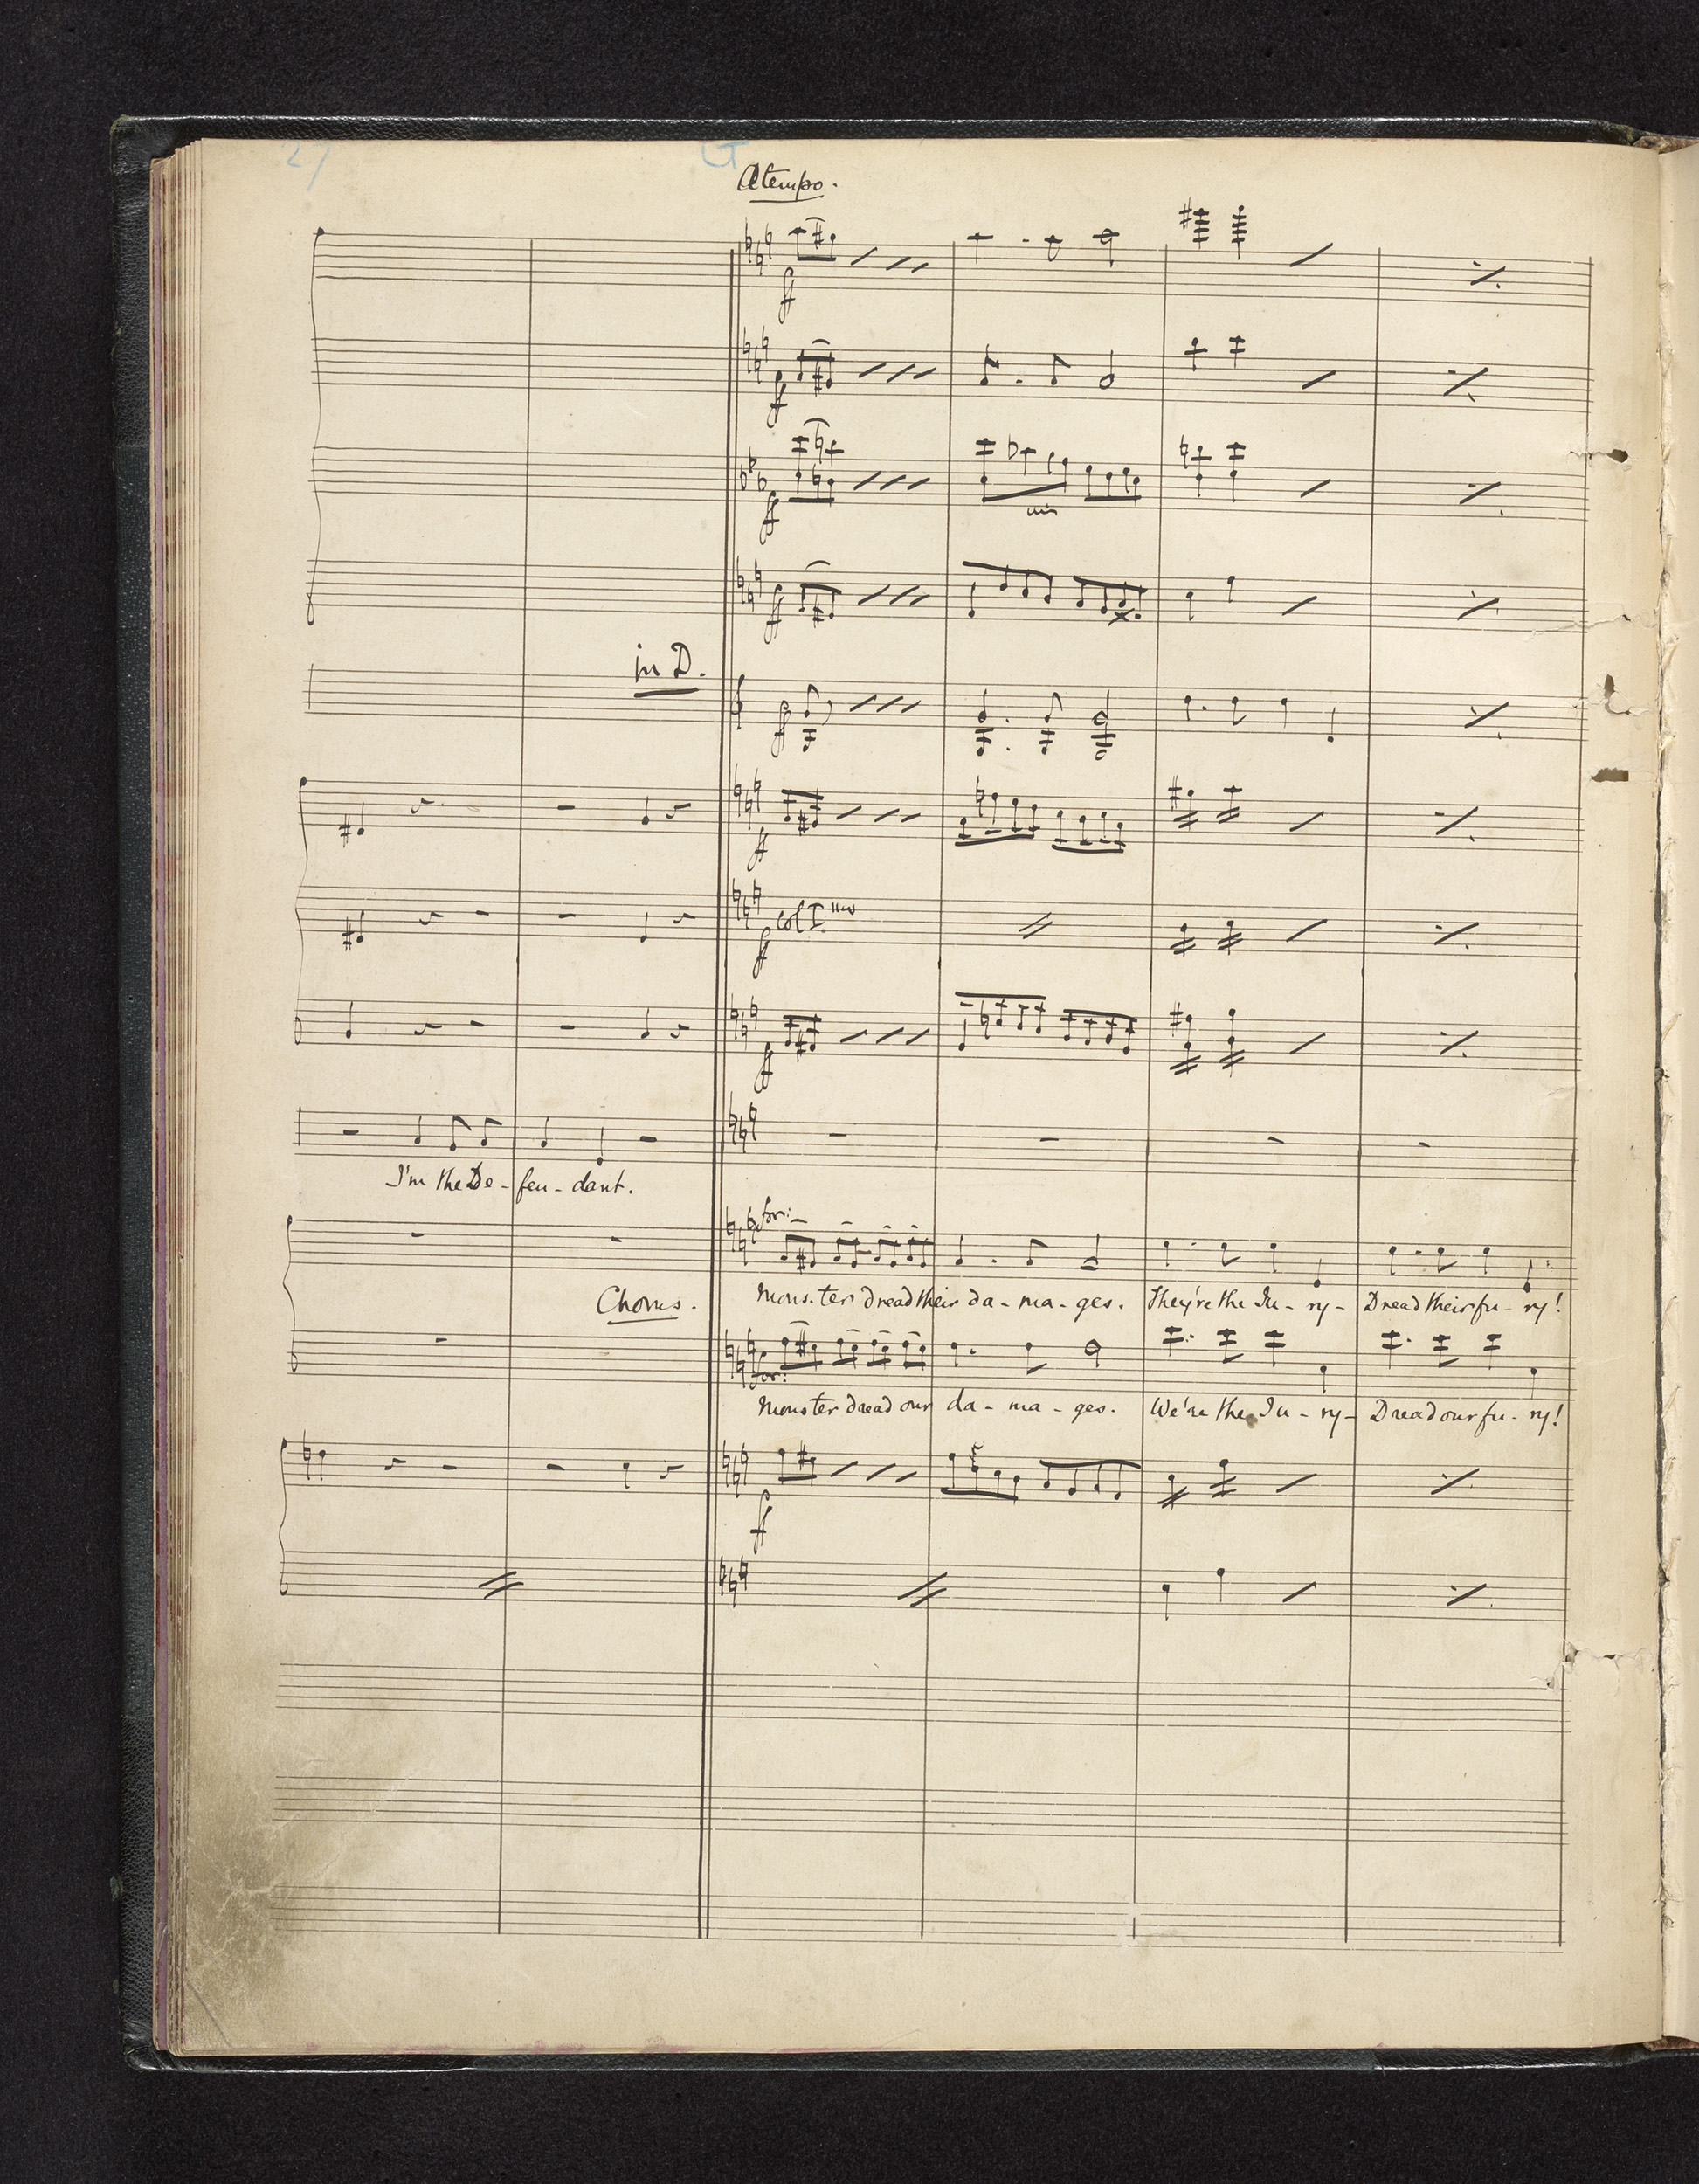 27
A tempo.
ff
ff
ff
ff
in D.
ff
ff
ff col Imo
ff
I'm the De - fen - dant.
for:
Chorus.
Mons-ter dread their da - ma - ges. They're the Ju - ry - Dread their fu - ry!
for:
Monster dread our da - ma - ges. We're the Ju - ry - Dread our fu - ry!
ff